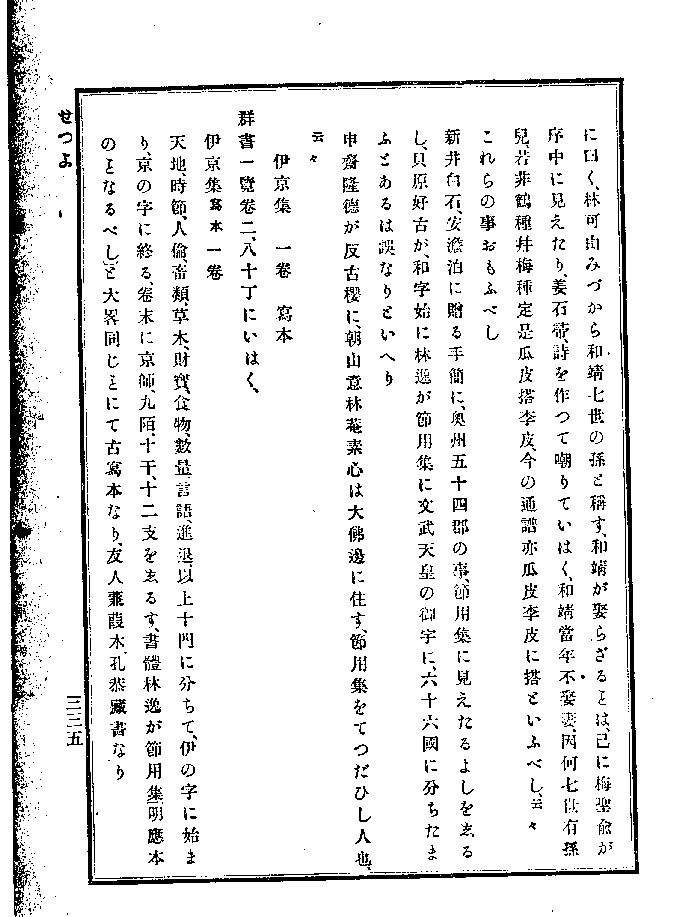 に曰く、林可山みづから和靖七世の孫と稱す、和靖が娶らざることは、已に梅聖兪が
序中に見えたり、姜石帚、詩を作つて嘲りていはく、和靖當年不娶妻、因何七世有孫
兒、若非鶴種幷梅種定是瓜皮搭李皮、今の通譜亦瓜皮李皮に搭といふべし、云々
これらの事おもふべし
新井白石、安澹泊に贈る手簡に、奥州五十四郡の事、節用集に見えたるよしをゑる
し、貝原好古が、和字始に林逸が節用集に文武天皇の御宇に、六十六國に分ちたま
ふとあるは誤なりといへり
申齋隆德が反古櫻に、朝山意林菴素心は大佛邊に住す、節用集をてつだひし人也、
云々
伊京集 一卷 寫本
群書一覽卷二、八十丁にいはく、
伊京集寫本一卷
天地、時節、人倫、畜類、草木、財寶、食物、數量言語、進退、以上十門に分ちて、伊の字に始ま
り、京の字に終る、卷末に京師、九陌、十干、十二支をゑるす、書體林逸が節用集明應本
のとなるべしと大畧同じことにて古寫本なり、友人蒹葭木孔恭藏書なり
せつよ
三三五